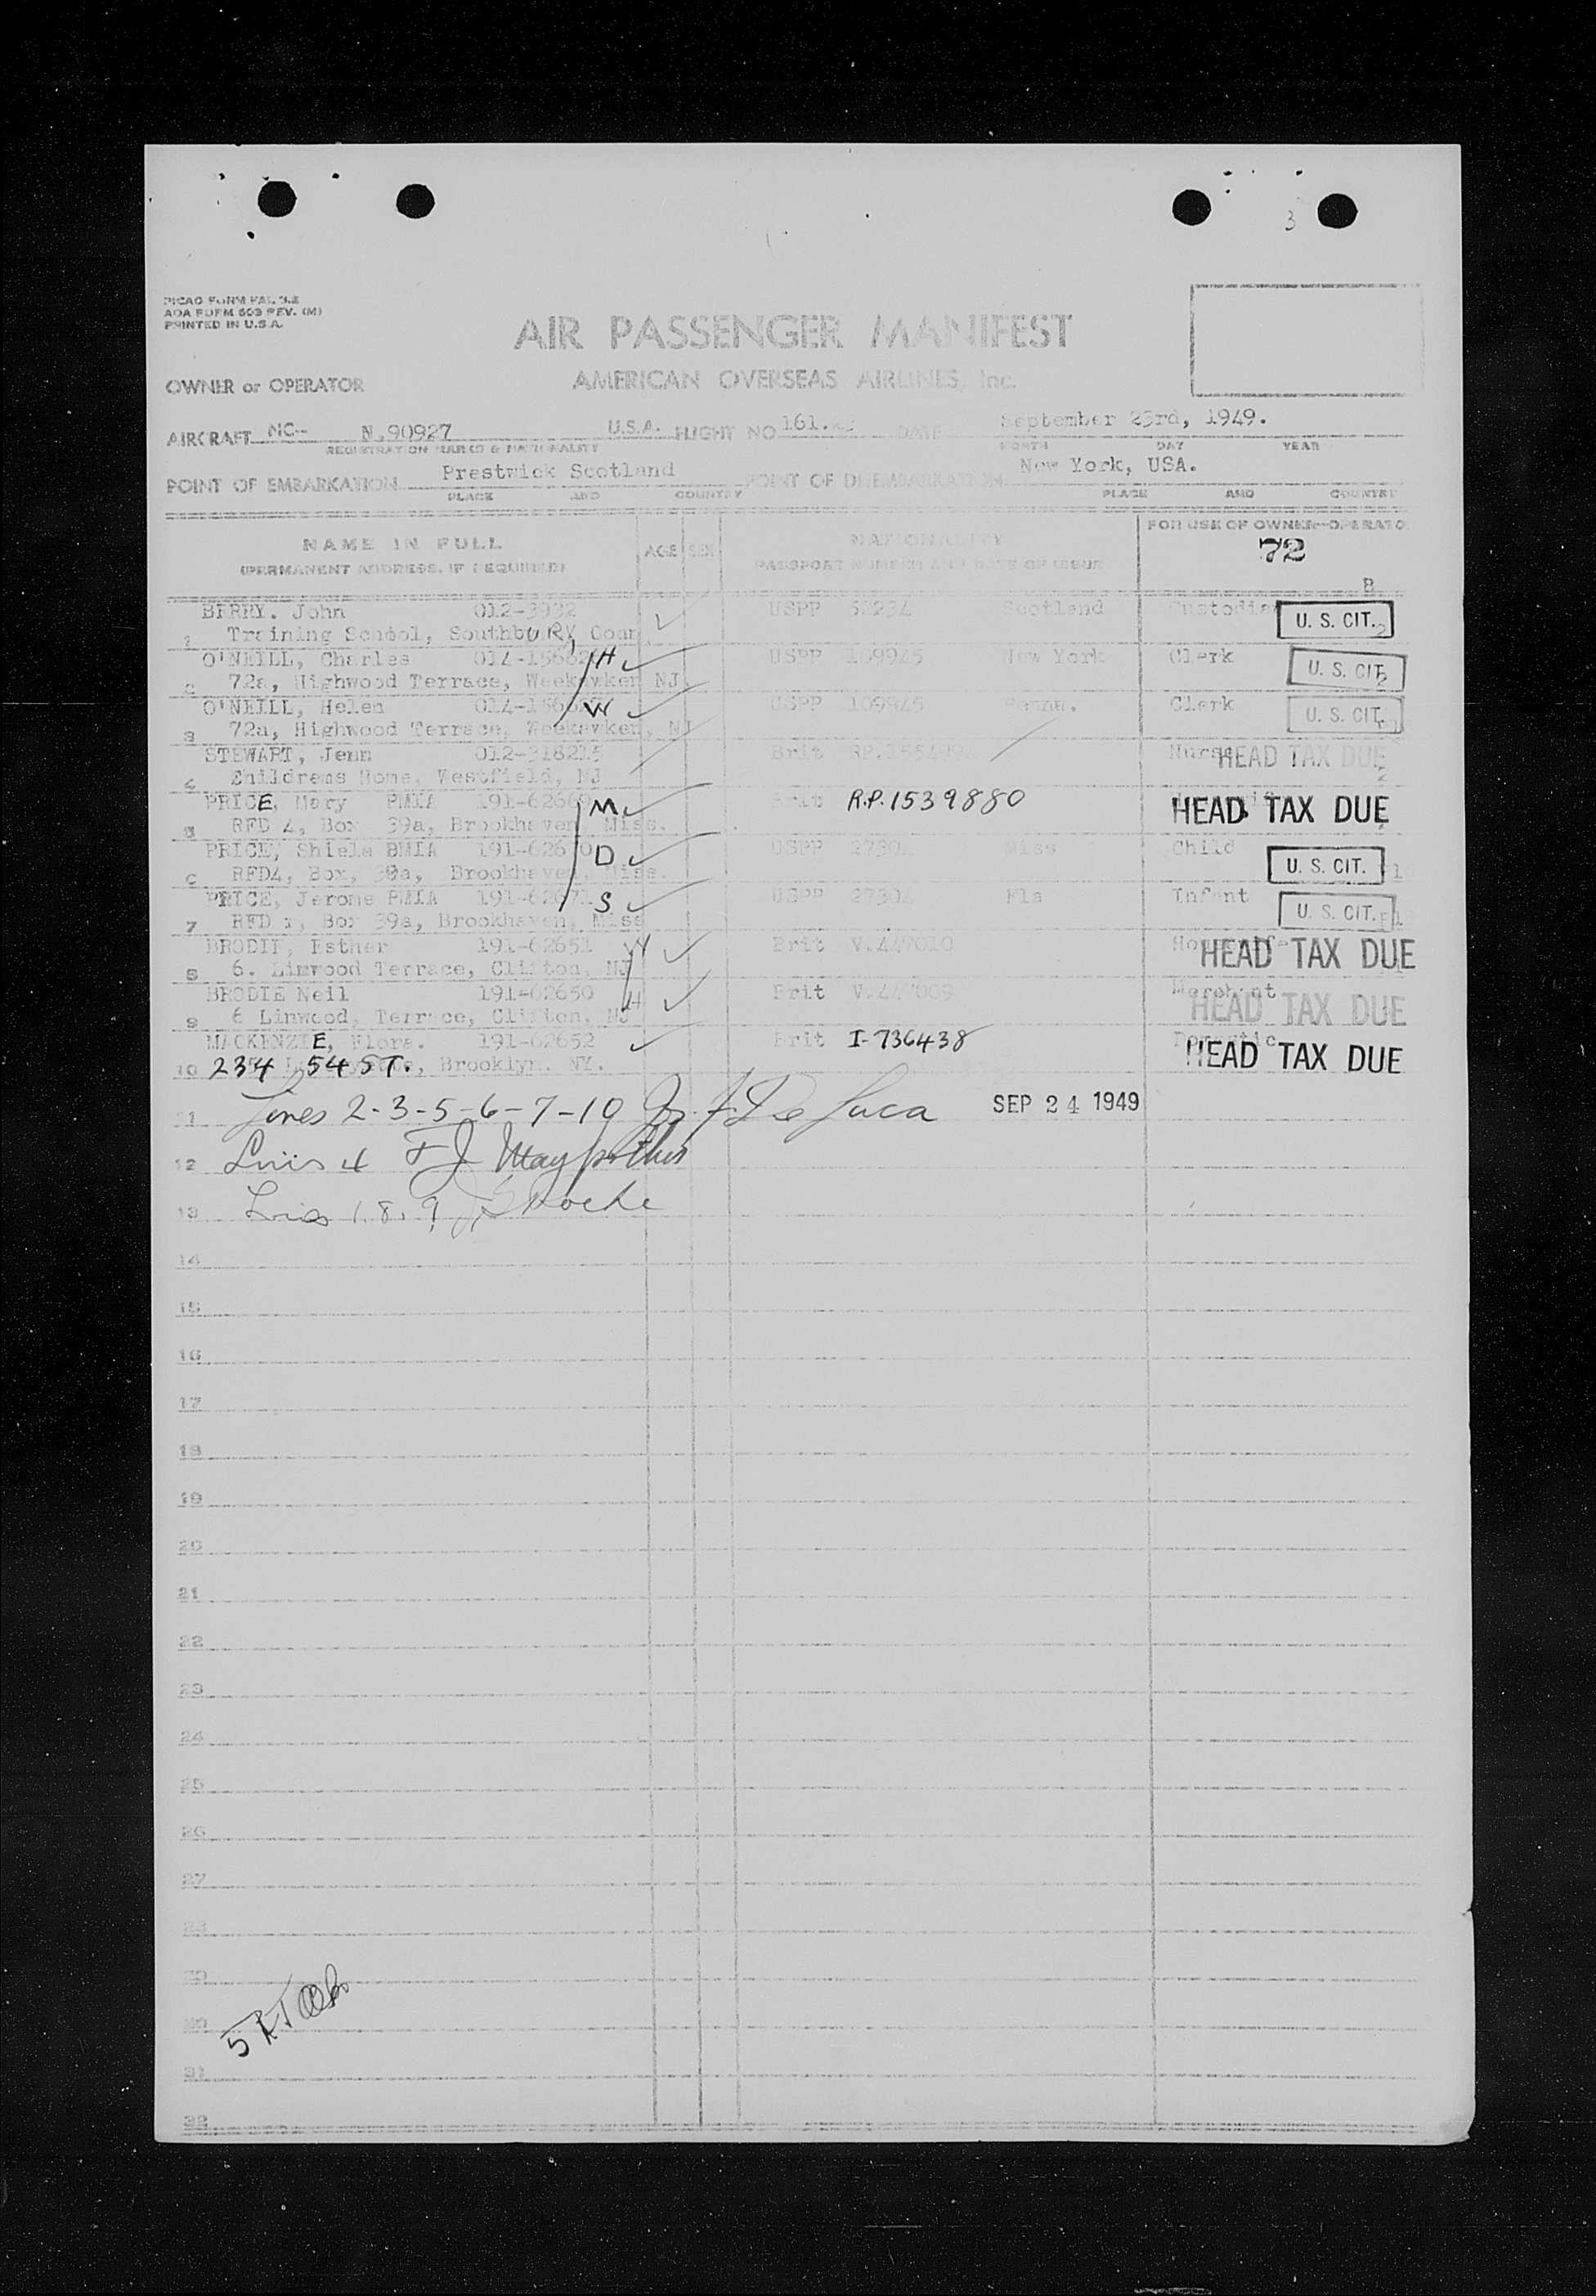 3
PICAO FORM FAL 3.2
AOA FORM 603 REV. (M)
PRINTED IN U.S.A.
AIR PASSENGER MANIFEST
OWNER or OPERATOR AMERICAN OVERSEAS AIRLINES, Inc.
AIRCRAFT NC-- N.90927 U.S.A. FLIGHT NO 161. DATE September 23rd, 1949.
REGISTRATION MARKS & NATIONALITY MONTH DAY YEAR
POINT OF EMBARKATION Prestwick Scotland POINT OF DISEMBARKATION New York, USA.
PLACE AND COUNTRY PLACE AND COUNTRY
NAME IN FULL AGE SEX NATIONALITY FOR USE OF OWNER-OPERATO
(PERMANENT ADDRESS, IF REQUIRED) PASSPORT NUMBER AND DATE OF ISSUE 72
B
BERRY. John 012-3932 USPP 52234 Scotland Custodian U. S. CIT.
1 Training School, Southbury, Conn
O'NEILL, Charles H USPP 109945 New York Clerk U. S. CIT.
2 72a, Highwood Terrace, Weekawken NJ
O'NEILL, Helen W USPP 109945 Penna. Clerk U. S. CIT.
3 72a, Highwood Terrace, Weekawken, NJ
STEWART, Jenn 012-318215 Brit Nurse HEAD TAX DUE
4 Childrens Home, Westfield, NJ
PRICE, Mary PMIA M Brit R.P.1539880 HEAD TAX DUE
5 RFD 4, Box 39a, Brookhaven Miss.
PRICE, Shiela BMIA 191-62670 D USPP Miss Child U. S. CIT. 1
6 RFD4, Box, 39a, Brookhaven, Miss.
PRICE, Jerome PMIA 191-62671 S USPP Fla Infant U. S. CIT.
7 RFD Box 39a, Brookhaven, Miss
BRODIE, Esther 191-62651 W Brit V.447010 Housewife HEAD TAX DUE
8 6. Linwood Terrace, Clifton, NJ
BRODIE Neil 191-62650 H Brit V.447009 Merchant HEAD TAX DUE
9 6 Linwood, Terrace, Clifton. NJ
MACKENZIE, Flora. 191-62652 Brit I-736438 Domestic HEAD TAX DUE
10 234 54 ST., Brooklyn. NY.
11 Lines 2-3-5-6-7-10 De Luca SEP 24 1949
12 Line 4 F J
13 Lines 1. 8. 9 Roche
14
15
16
17
18
19
20
21
22
23
24
25
26
27
28
29
30
31
32